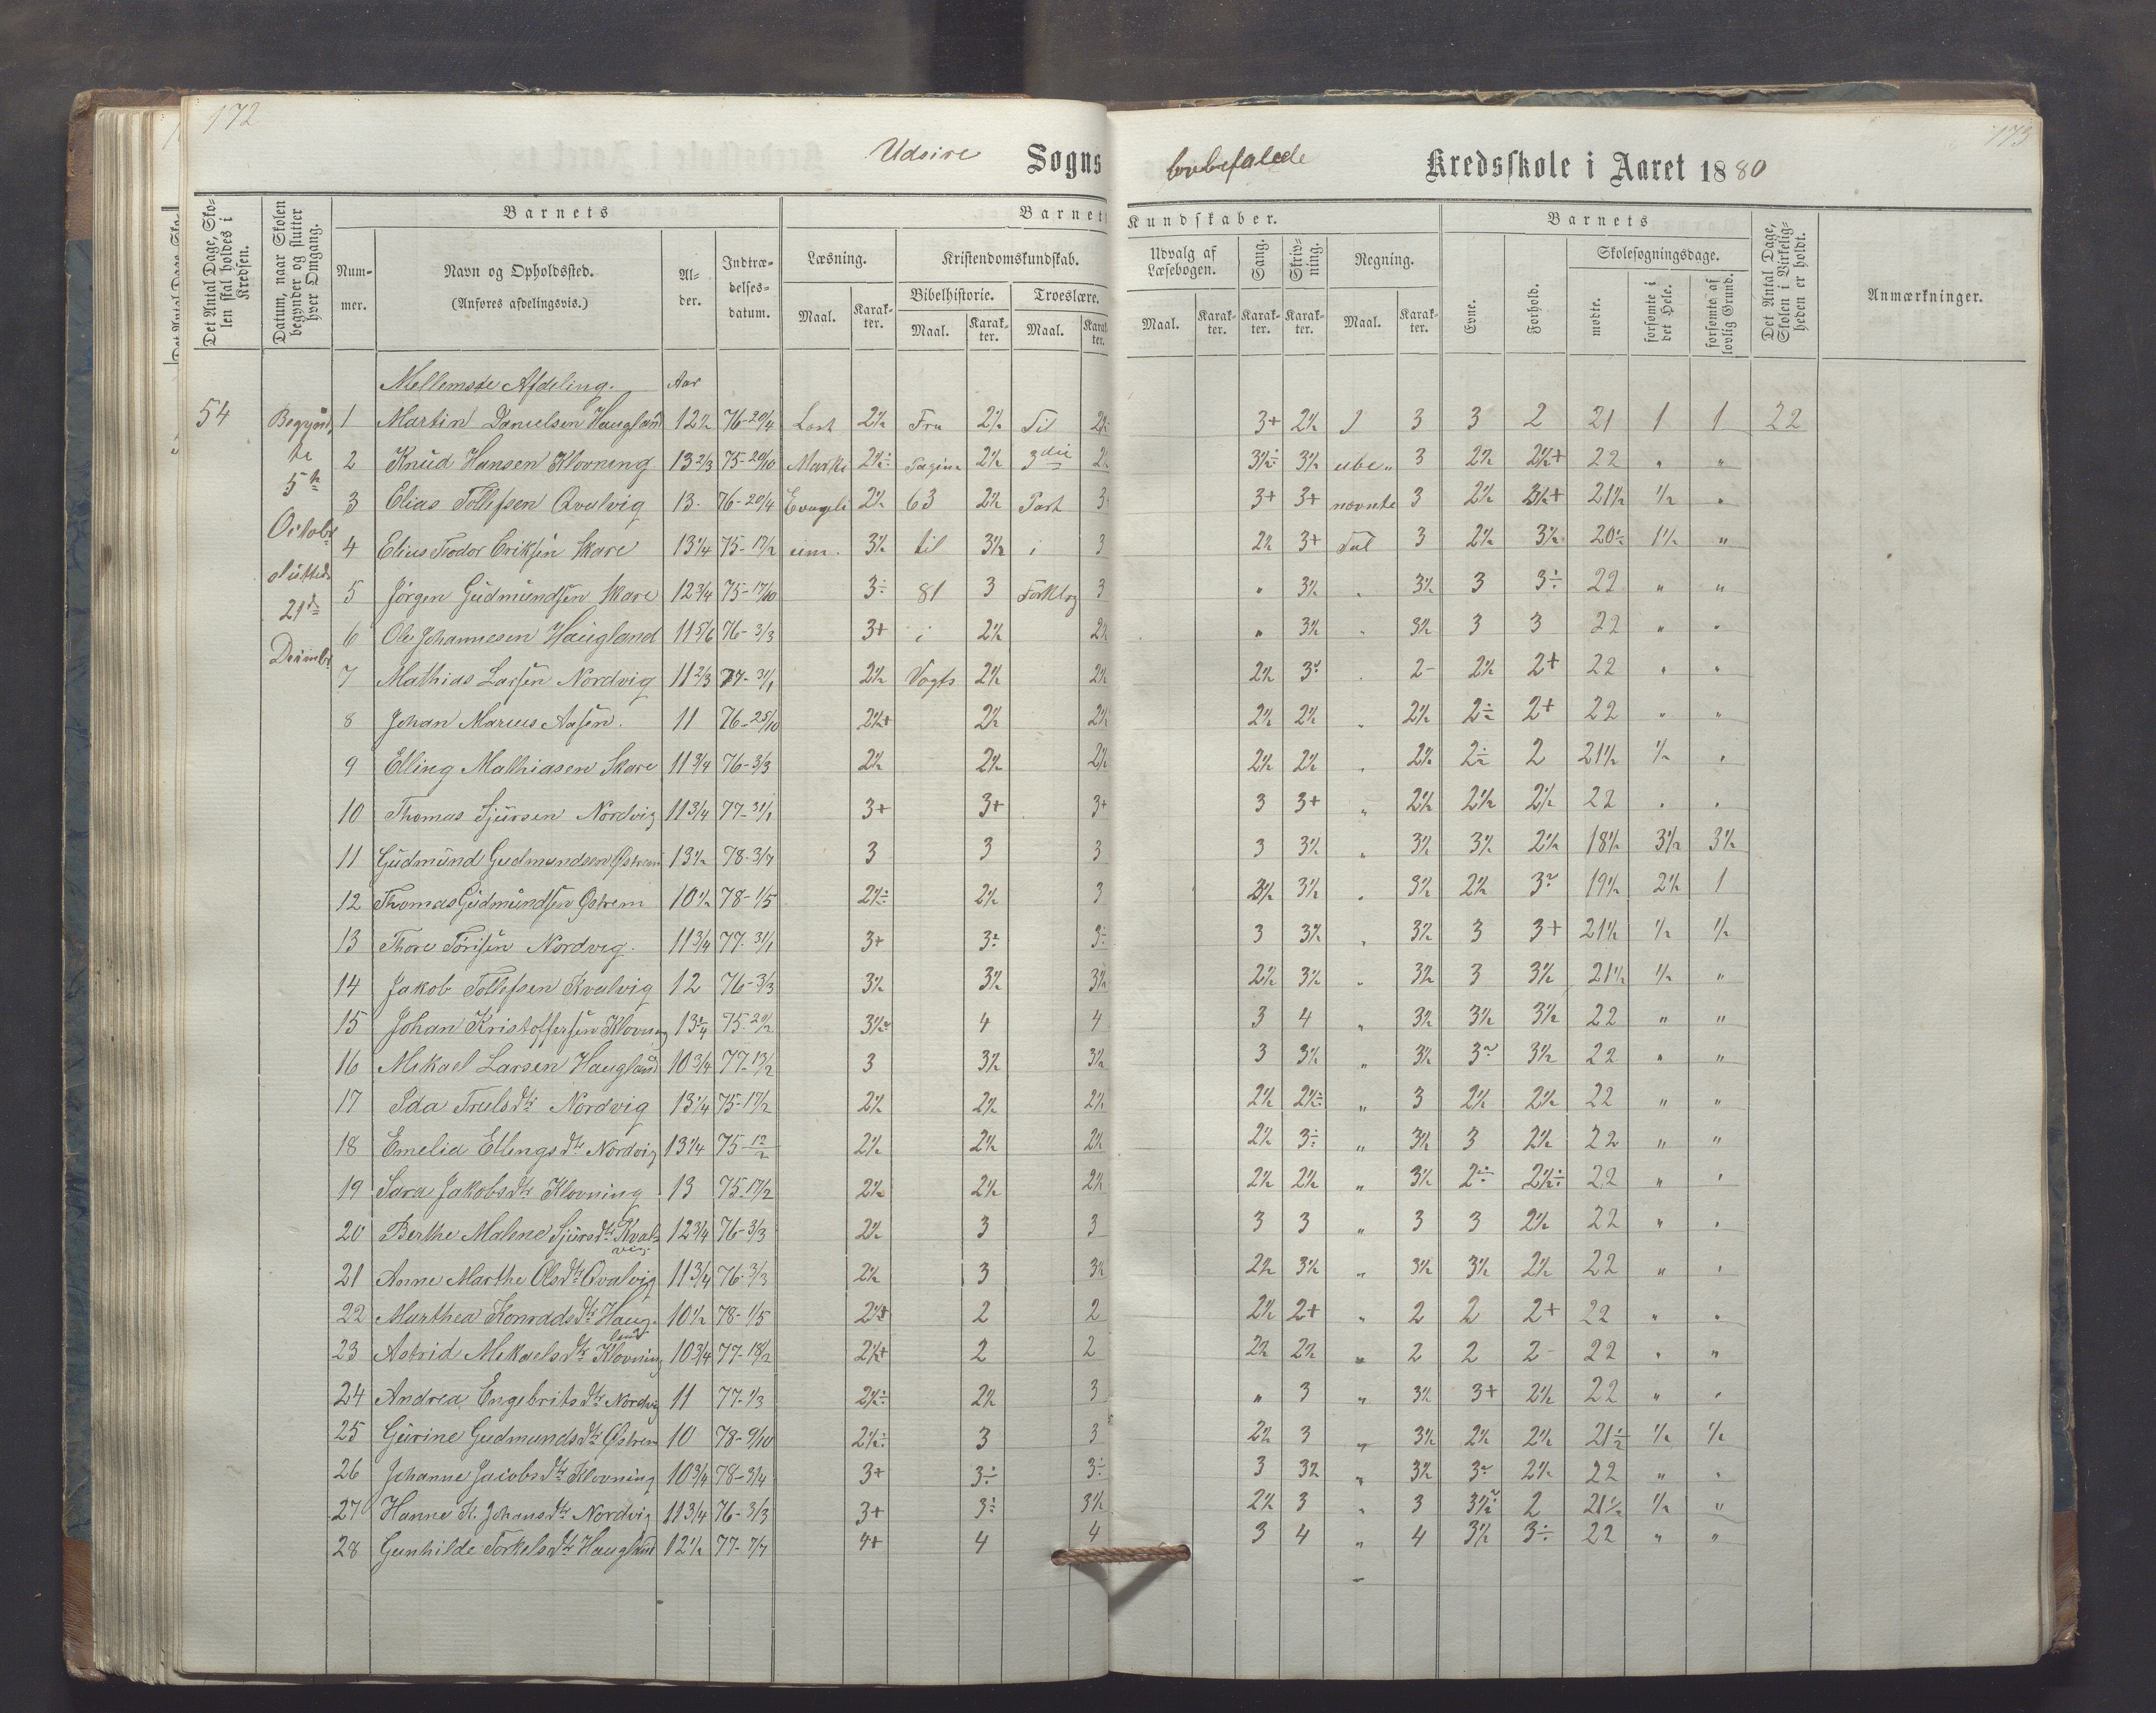 172
173
Udsire Sogns lovbefalede Kredsskole i Aaret 1880
Det Antal Dage, Skolen skal holdes i Kredsen.
Datum, naar Skolen begynder og slutter hver Omgang.
Barnets
Nummer.
Navn og Opholdssted. (Anføres afdelingsvis.)
Alder.
Indtrædelsesdatum.
Barnets Kundskaber.
Læsning.
Kristendomskundskab.
Bibelhistorie.
Troeslære.
Maal. Karakter. Maal. Karakter. Maal. Karakter.
Udvalg af Læsebogen.
Maal. Karakter.
Sang. Karakter.
Skrivning. Karakter.
Regning.
Maal. Karakter.
Barnets
Evne.
Forhold.
Skolesøgningsdage.
mødte.
forsømte i det Hele.
forsømte af lovlig Grund.
Det Antal Dage, Skolen i Virkeligheden er holdt.
Anmærkninger.
Mellemste Afdeling. Aar
54 1 Martin Danielsen Haugland 12½ 76-20/4 Læst 2½ Fra 2½ Til 3+ 2½ 3 3 2 21 1 1 22
2 Knud Hansen Klovning 13 2/3 75-20/10 2½÷ Pagina 2½ 3die 3½÷ 3½ ube- 3 2½ 2½+ 22 " "
3 Elias Tollefsen Qvalvig 13 76-20/4 2½ 63 2½ Part 3+ 3+ nævnte 3 2½ 3½+ 21½ ½ "
4 Elius Teodor Eriksen Skare 13¼ 75-17/2 3½ til 3½ i 3 2½ 3+ Tal 3 2½ 3½ 20½ 1½ "
5 Jørgen Gudmundsen Skare 12¾ 75-17/10 3÷ 81 3 Forklrg 3 " 3½ " 3½ 3 3÷ 22 " "
6 Ole Johannesen Haugland 11 5/6 76-3/3 3+ i 2½ 2½ " 3½ " 3½ 3 3 22 " "
7 Mathias Larsen Nordvig 11 2/3 77-31/1 2½ Vogts 2½ 2½ 2½ 3 2- 2½ 2+ 22 " "
8 Johan Marius Aasen. 11 76-25/10 2½+ 2½ 2½ 2½ 2½ " 2½ 2÷ 2+ 22 " "
9 Elling Mathiasen Skare 11¾ 76-3/3 2½ 2½ 2½ 2½ 2½ " 2½ 2÷ 2 21½ ½ "
10 Thomas Sjursen Nordvig 11¾ 77-31/1 3+ 3+ 3+ 3 3+ " 2½ 2½ 2½ 22 " "
11 Gudmund Gudmundsen Østrem 13½ 78-3/7 3 3 3 3 3½ " 3½ 3½ 2½ 18½ 3½ 3½
12 Thomas Gudmundsen Østrem 10½ 78-1/5 2½÷ 2½ 3 3½ " 3½ 2½ 3 19½ 2½ 1
13 Thore Torisen Nordvig. 11¾ 77-31/1 3+ 3÷ 3÷ 3 3½ " 3½ 3 3+ 21½ ½ ½
14 Jakob Tollefsen Kvalvig 12 76-3/3 3½ 3½ 3½ 2½ 3½ " 3½ 3 3½ 21½ ½ "
15 Johan Kristoffersen Klovning 13¼ 3½ 4 4 3 4 " 3½ 3½ 3½ 22 " "
16 Mikael Larsen Haugland 10¾ 77-13/2 3 3½ 3½ 3 3½ " 3½ 3 3½ 22 " "
17 Ida Truls dtr Nordvig 13¼ 75-17/2 2½ 2½ 2½ 2½ 2½÷ " 3 2½ 2½ 22 " "
18 Emelia Ellings dtr Nordvig 13¼ 75-12/2 2½ 2½ 2½ 2½ 3÷ " 3½ 3 2½ 22 " "
19 Sara Jakobs dtr Klovning 13 75-17/2 2½ 2½ 2½ 2½ 2½ " 3½ 2÷ 2½÷ 22 " "
20 Berthe Malene Sjurs dtr Kvalvig 12¾ 76-3/3 2½ 3 3 3 3 " 3 3 2½ 22 " "
21 Anne Marthe Ols dtr Qvalvig 11¾ 76-3/3 2½ 3 3½ 2½ 3½ " 3½ 3½ 2½ 22 " "
22 Marthea Konrads dtr Haugland 10½ 78-1/5 2½+ 2 2 2½ 2+ " 2 2 2+ 22 " "
23 Astrid Mikaels dtr Klovning 10¾ 77-18/2 2½+ 2 2 2½ 2½ " 2 2 2- 22 " "
24 Andrea Engebrits dtr Nordvig 11 77-1/3 2½÷ 2½ 3 " 3 " 3½ 3+ 2½ 22 " "
25 Gurine Gudmunds dtr Østrem 10 78-9/10 2½÷ 3 3 2½ 3 " 3½ 2½ 2½ 21½ ½ ½
26 Johanne Jacobs dtr Klovning 10¾ 78-3/4 3+ 3÷ 3÷ 3 3½ " 3½ 3 2½ 22 " "
27 Hanne K. Johans dtr Nordvig 11¾ 76-3/3 3+ 3÷ 3½ 2½ 3 " 3 3½ 2 21½ ½ "
28 Gunhilde Torkels dtr Haugland 12½ 77-7/7 4+ 4 4 3 4 " 4 3½ 3÷ 22 " "
Begyndte 5te October sluttede 21de Decembr